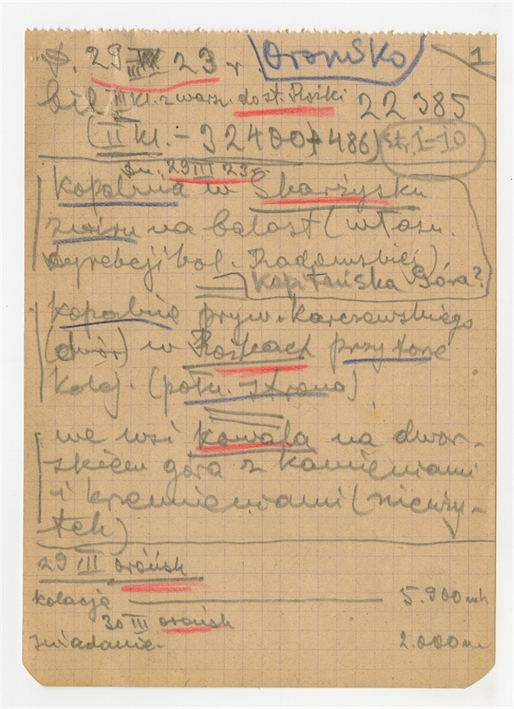 D. 29 III 23 r. Orońsko 1
bil III kl. z warsz. do st. Ruski 22 385
(II kl. - 32400 + 486) str. 1-10
Dn. 29 III 23
Kopalnia w Skarżysku
żwiru na balast (własn.
dyrekcji kol. Radomskiej).
Kapitańska Góra?
Kopalnię pryw. Karczewskiego
(dwór) w Rożkach przy torze
kolej. (połn. strona)
we wsi Kowala na dwor-
skiem góra z kamieniami
i krzemieniami (nieuży-
tek)
29 III Orońsk
kolacja 5.900 mk
30 III Orońsk
śniadanie 2.000 m